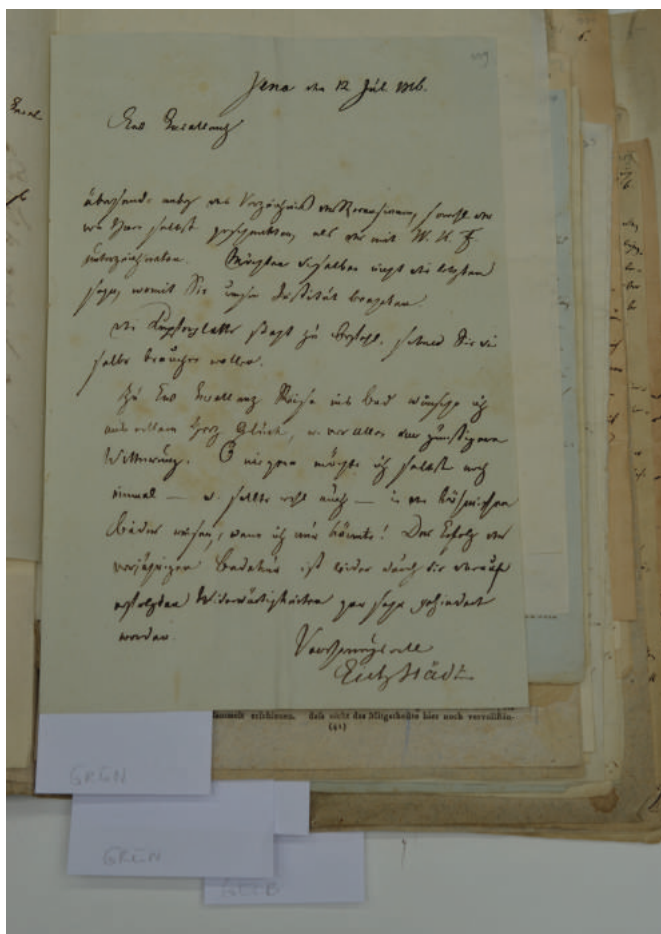 Jena den 12 Jul. 1816.
Ew. Excellenz
übersende anbey das Verzeichniß der Recensionen, sowohl der
von Ihnen selbst geschenkten, als der mit W. K. F.
unterzeichneten. Möchten dieselben nicht die letzten
seyn, womit Sie unser Institut begaben.
Die Kupferplatte steht zu Befehl, sobald Sie die
selbe brauchen wollen.
Zu Ew. Excellenz Reise ins Bad wünsche ich
aus vollem Herz Glück, u. vor allem eine günstigere
Witterung. O wie gern möchte ich selbst noch
einmal — u. sollte wohl auch — in die Böhmischen
Bäder reisen, wenn ich nur könnte! Der Erfolg der
vorjährigen Badekur ist leider durch die darauf
erfolgten Widerwärtigkeiten gar sehr gehindert
worden.
Verehrungsvoll
Eichstädt
lammelt erschienen. daß nicht das Mitgetheilte hier noch vervollstän-
(41)
GRÜN
GRÜN
GELB